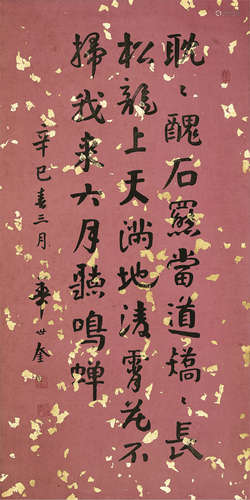 耽〻醜石羆當道矯〻長
松龍上天滿地淩霄花不
掃我來六月聽鳴蟬
辛巳春三月 華世奎